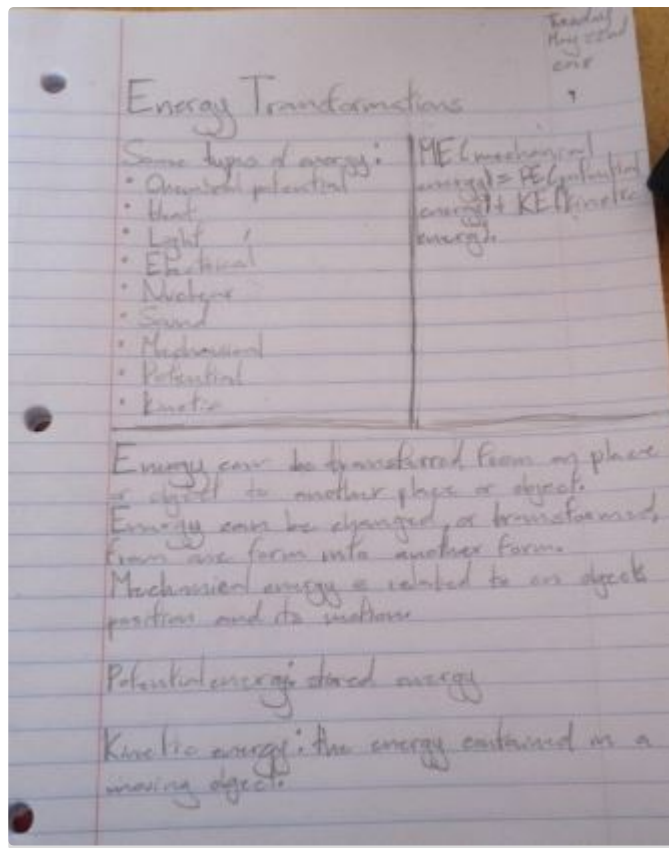 Tuesday
May 22nd
Energy Transformations
Some types of energy:
• Chemical potential
• Heat
• Light
• Electrical
• Nuclear
• Sound
• Mechanical
• Potential
• Kinetic
ME (mechanical
energy) = PE (potential
energy) + KE (kinetic
energy).
Energy can be transferred from on place
or object to another place or object.
Energy can be changed, or transformed,
from one form into another form.
Mechanical energy is related to an objects
position and its motion
Potential energy: stored energy
Kinetic energy: the energy contained in a
moving object.